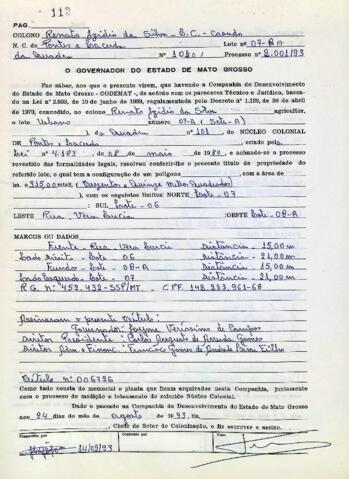 112
PAG.
COLONO Renato Izidio da Silva - B.C. - Casado
N. C. de Pontes e Lacerda Lote nº 07-A
da Quadra Nº 101 Processo nº 2.001/93
O GOVERNADOR DO ESTADO DE MATO GROSSO
FAZ SABER, aos que o presente virem, que havendo a Companhia de Desenvolvimento
do Estado de Mato Grosso - CODEMAT -, de acordo com os pareceres Técnico e Jurídico, basea-
do na Lei nº 2.933, de 10 de junho de 1969, regulamentada pelo Decreto nº 1.128, de 30 de abril
de 1970, concedido, ao colono Renato Izidio da Silva agricultor,
o lote Urbano número 07-A (Sete-A)
), da Quadra nº 101 do NÚCLEO COLONIAL
DE Pontes e Lacerda criado pela
Lei nº 4.183 de 08 de maio de 1980, e achando-se o processo
revestido das formalidades legais, resolveu conferir-lhe o presente título de propriedade do
referido lote, o qual tem a configuração de um polígono com a área de
315,00 mts2, (Trezentos e Quinze Metros Quadrados)
), com os seguintes limites: NORTE Lote-07
: SUL Lote - 06
LESTE Rua. Vera Lucia :OESTE Lote - 08-A
MARCOS OU DADOS
Frente - Rua - Vera Lucia Distância - 15,00 m
Lado Direito - Lote - 06 Distância - 21,00 m
Fundo - Lote - 08-A Distância - 15,00 m
Lado Esquerdo - Lote - 07 Distância - 21,00 m
R.G. nº 452.432-SSP/MT. CPF. 148.283.961-68
Assinaram o presente Título:
Governador Jayme Veríssimo de Campos
Diretor Presidente: Carlos Augusto de Arruda Gomes
Diretor Adm. e Financ. Francisco Gomes de Andrade Lima Filho
Título nº 006726
Como tudo consta do memorial e planta que ficam arquivados nesta Companhia, juntamente
com o processo de medição e loteamento do referido Núcleo Colonial.
Dado e passado na Companhia de Desenvolvimento do Estado de Mato Grosso
aos 24 dias do mês de agosto de 1993. Eu,
, Chefe de Setor de Colonização, o fiz escrever e assino.
Transcrito por
Conferido por
Visto
14/09/93